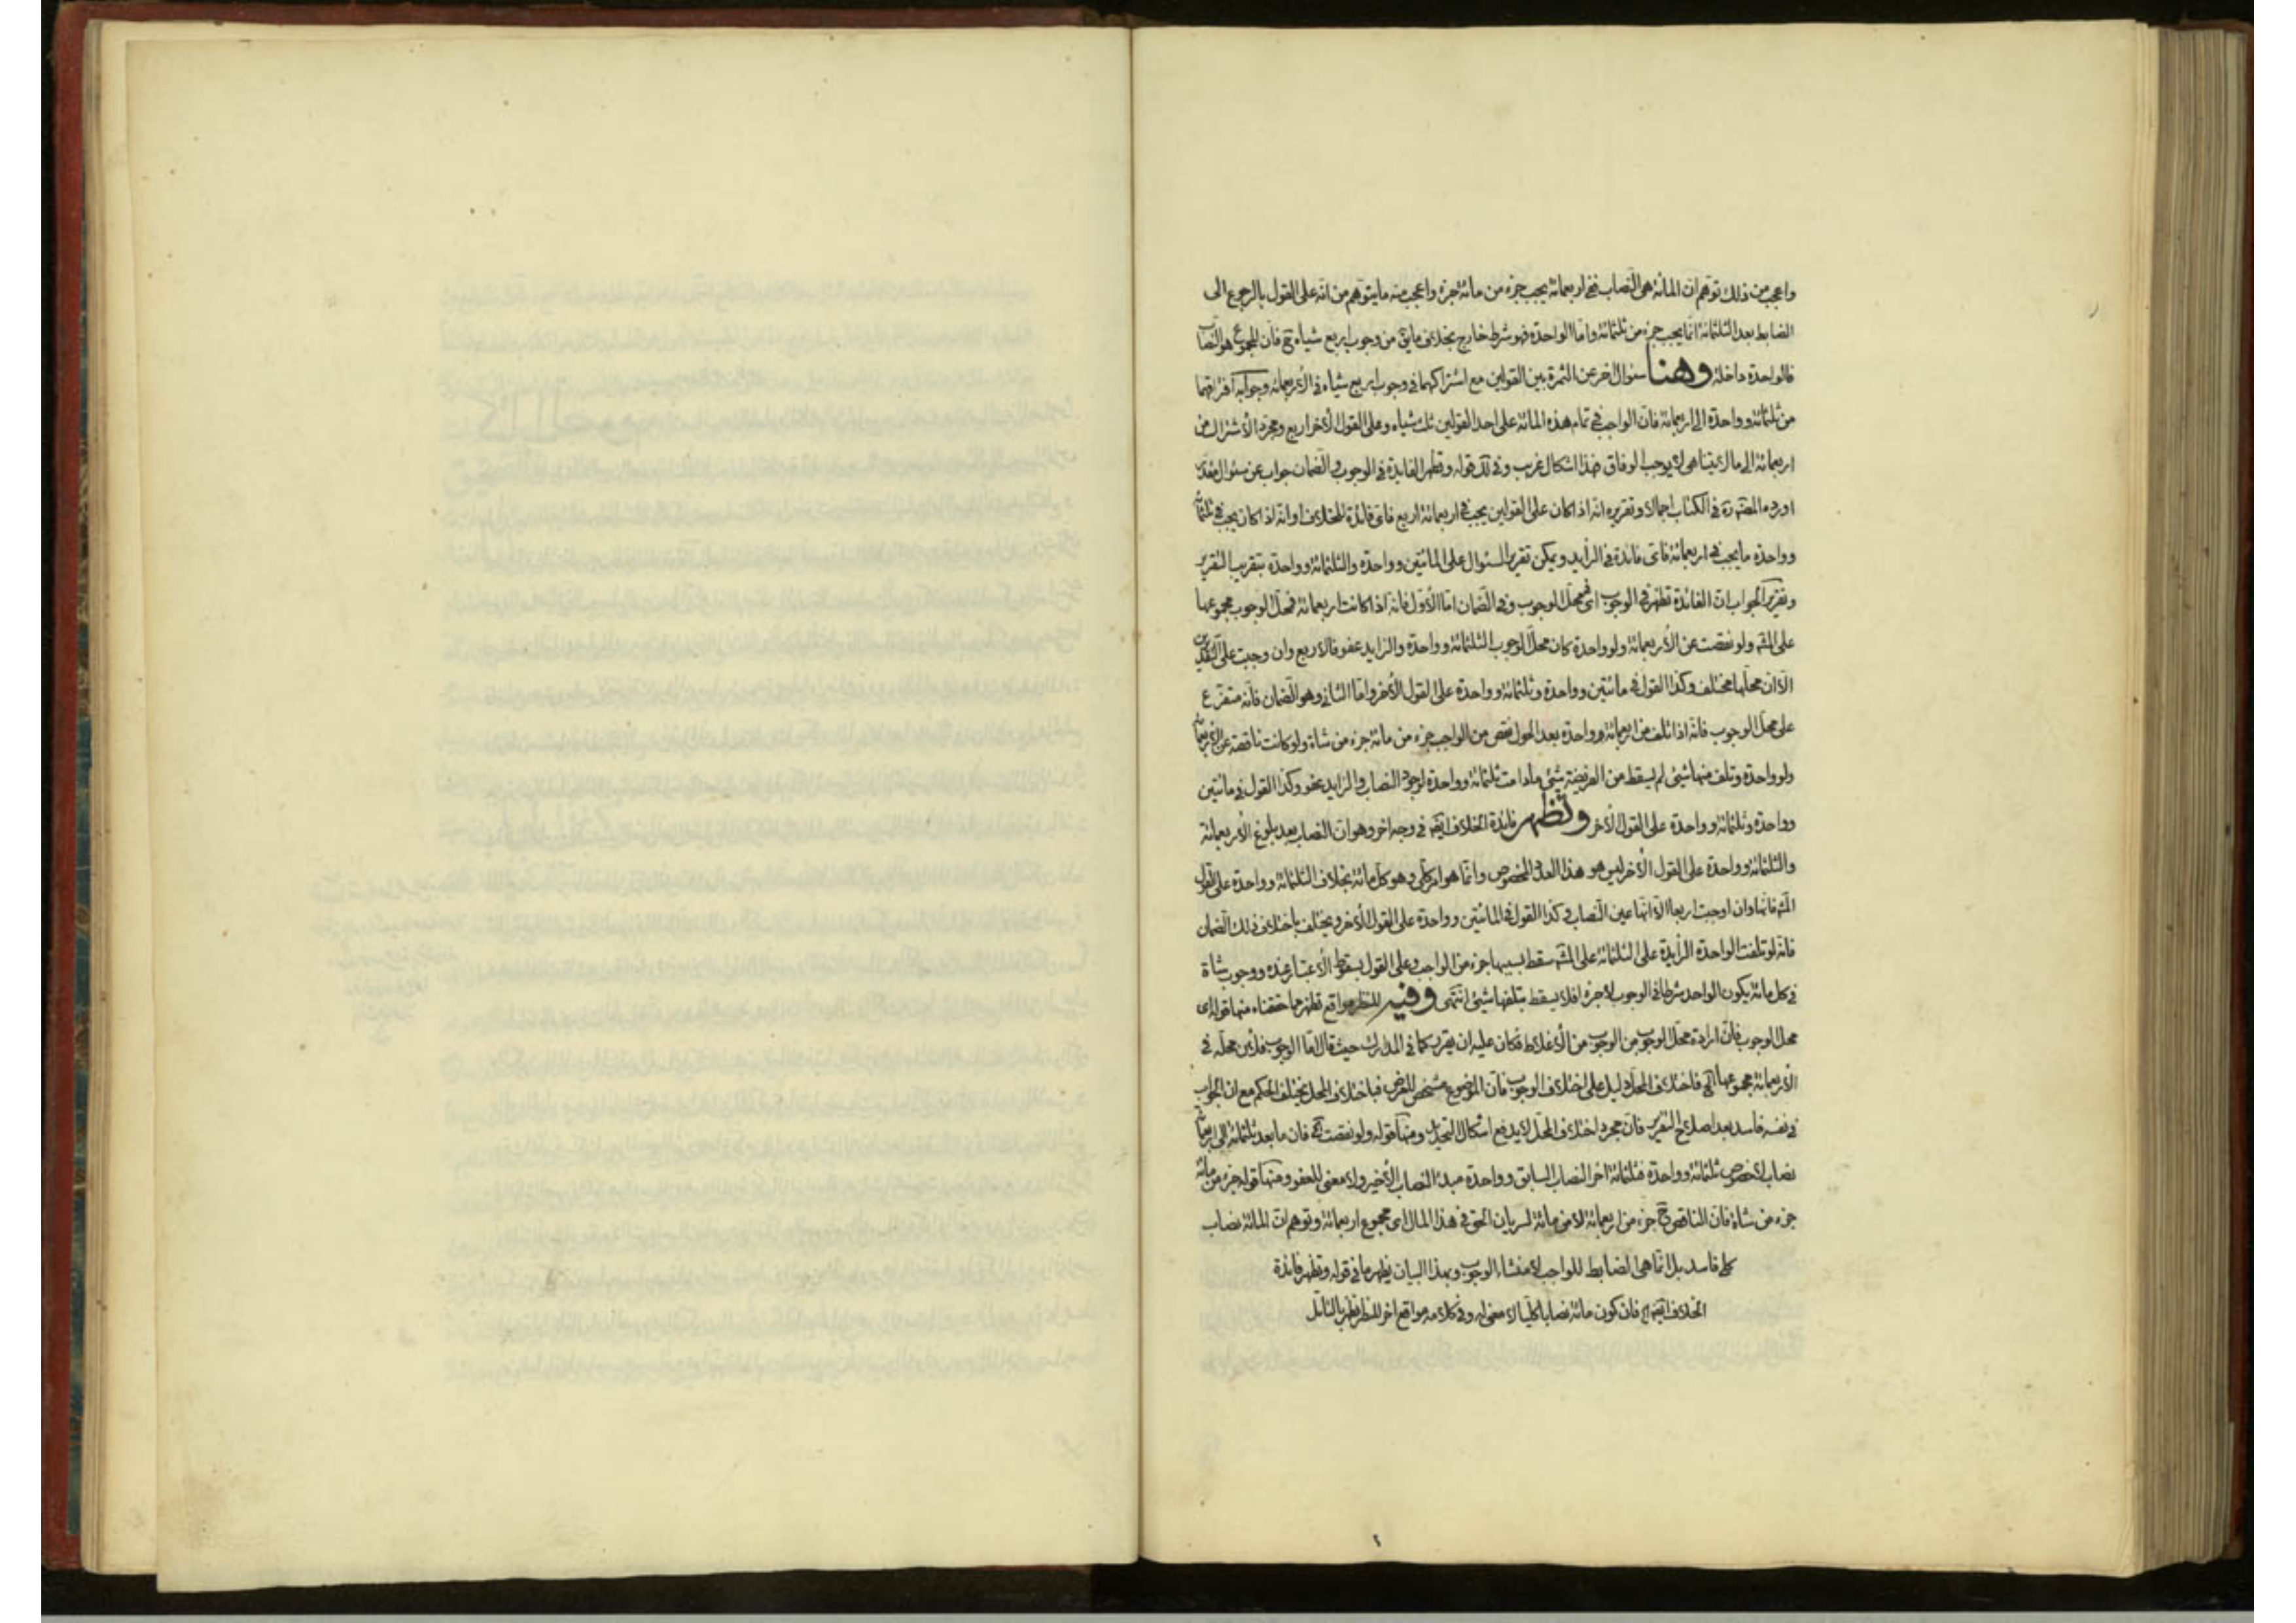 واعجب من ذلك توهم ان المائة هى النصاب ففى اربعمائة يجب جزء من مائة جزء واعجب منه ما يتوهم من انه على القول بالرجوع الى
الضابط بعد الثلثمائة انما يجب جزء من ثلثمائة واما الواحدة فهو شرط خارج بخلاف ما بقى من وجوب اربع شياه ح فان المجموع هو النصاب
فالواحدة داخلة وهنا سئوال اخر عن الثمرة بين القولين مع اشتراكهما فى وجوب اربع شياه فى الأربعمائة وجوابه افتراقهما
من ثلثمائة وواحدة الى اربعمائة فان الواجب فى تمام هذه المائة على احد القولين ثلث شياه وعلى القول الأخر اربع ومجرد الأشتراك من
اربعمائة الى ما لا يتناهى لا يوجب الوفاق هذا اشكال غريب وفى لك قوله وتظهر الفايدة فى الوجوب والضمان جواب عن سئوال مقدر
اورده المصّ ره فى الكتاب اجمالا وتقريره انه اذا كان على القولين يجب فى اربعمائة اربع فاى فائدة للخلاف او انه اذا كان يجب فى ثلثمائة
وواحدة ما يجب فى اربعمائة فاى فائدة فى الزايد ويمكن تقرير السئوال على المائتين وواحدة والثلثمائة وواحدة بتقريب التقرير
وتقرير الجواب ان الفائدة تظهر فى الوجوب اى فى محل الوجوب وفى الضمان اما الأول فانه اذا كانت اربعمائة فمحل الوجوب مجموعها
على المشهـ ولو نقصت عن الأربعمائة ولو واحدة كان محل الوجوب الثلثمائة وواحدة والزايد عفو فالاربع وان وجبت على التقديرين
الا ان محلها مختلف وكذا القول فى مائتين وواحدة وثلثمائة وواحدة على القول الأخر واما الثانى وهو الضمان فانه متفرع
على محل الوجوب فانه اذا تلف من اربعمائة وواحدة بعد الحول نقص من الواجب جزء من مائة جزء من شاة ولو كانت ناقصة عن الأربعمائة
ولو واحدة وتلف منها شئ لم يسقط من الفريضة شئ ما دامت ثلثمائة وواحدة لوجود النصاب والزايد عفو وكذا القول فى مائتين
وواحدة وثلثمائة وواحدة على القول الأخر وتظهر فائدة الخلاف ايضا فى وجه اخر وهو ان النصاب بعد بلوغ الأربعمائة
والثلثمائة وواحدة على القول الأخر ليس هو هذا العدد المخصوص وانما هو امر كلى وهو كل مائة بخلاف الثلثمائة وواحدة على القول
المشهـ فانها وان اوجبت اربعا الا انها عين النصاب وكذا القول فى المائتين وواحدة على القول الأخر ويختلف باختلاف ذلك الضمان
فانه لو تلفت الواحدة الزايدة على الثلثمائة على المشهـ سقط بسببها جزء من الواجب وعلى القول بسقوط الأعتبار عنده ووجوب شاة
فى كل مائة يكون الواحد شرطا فى الوجوب لا جزءا فلا يسقط بتلفها شئ انتهى وفيه للنظر مواقع تظهر مما حققناه منها قوله اى
محل الوجوب فان ارادة محل الوجوب من الوجوب من الأغلاط فكان عليه ان يقرر كما فى المدارك حيث قال اما الوجوب فلأن محله فى
الأربعمائة مجموعها الخ فاختلاف المحل دليل على اختلاف الوجوب فان الموضوع مشخص للعرض فباختلاف المحل يختلف الحكم مع ان الجواب
فى نفسه فاسد بعد اصلاح التقرير فان مجرد اختلاف المحل لا يدفع اشكال التحديد ومنها قوله ولو نقصت الخ فان ما بعد ثلثمائة الى اربعمائة
نصاب لا خصوص ثلثمائة وواحدة فثلثمائة اخر النصاب السابق وواحدة مبدء النصاب الأخير ولا معنى للعفو ومنها قوله جزء من مائة
جزء من شاة فان الناقص ح جزء من اربعمائة لا من مائة لسريان الحق فى هذا المال اى مجموع اربعمائة وتوهم ان المائة نصاب
كلى فاسد بل انما هى الضابط للواجب لا منشاء الوجوب وبهذا البيان يظهر ما فى قوله وتظهر فائدة
الخلاف ايضا الخ فان كون مائة نصابا كليا لا معنى له وفى كلامه مواقع اخر للنظر تظهر بالتامل